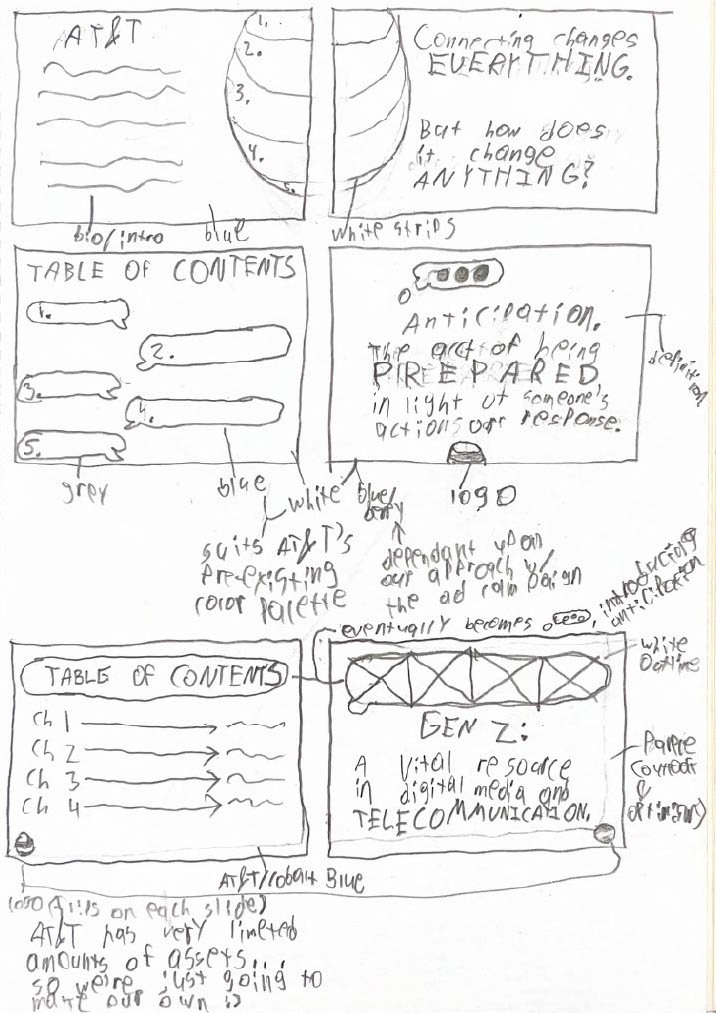 AT&T
1.
2.
3.
4.
5.
bio/intro
blue
Connecting changes
EVERYTHING.
But how does
it change
ANYTHING?
white strips
TABLE OF CONTENTS
1.
2.
3.
4.
5.
grey
blue
white
suits AT&T's
pre-existing
color palette
Anticipation.
The act of being
PREPARED
in light of someone's
actions or response.
definition
logo
blue/
dependant upon
our approach w/
the ad campaign
eventually becomes
introducing
anticipation
TABLE OF CONTENTS
Ch 1
Ch 2
Ch 3
Ch 4
AT&T/cobalt Blue
GEN Z:
A vital resource
in digital media and
TELECOMMUNICATION.
white
outline
Purple
logo (fills on each slide)
AT&T has very limited
amounts of assets...
so we're just going to
make our own :)